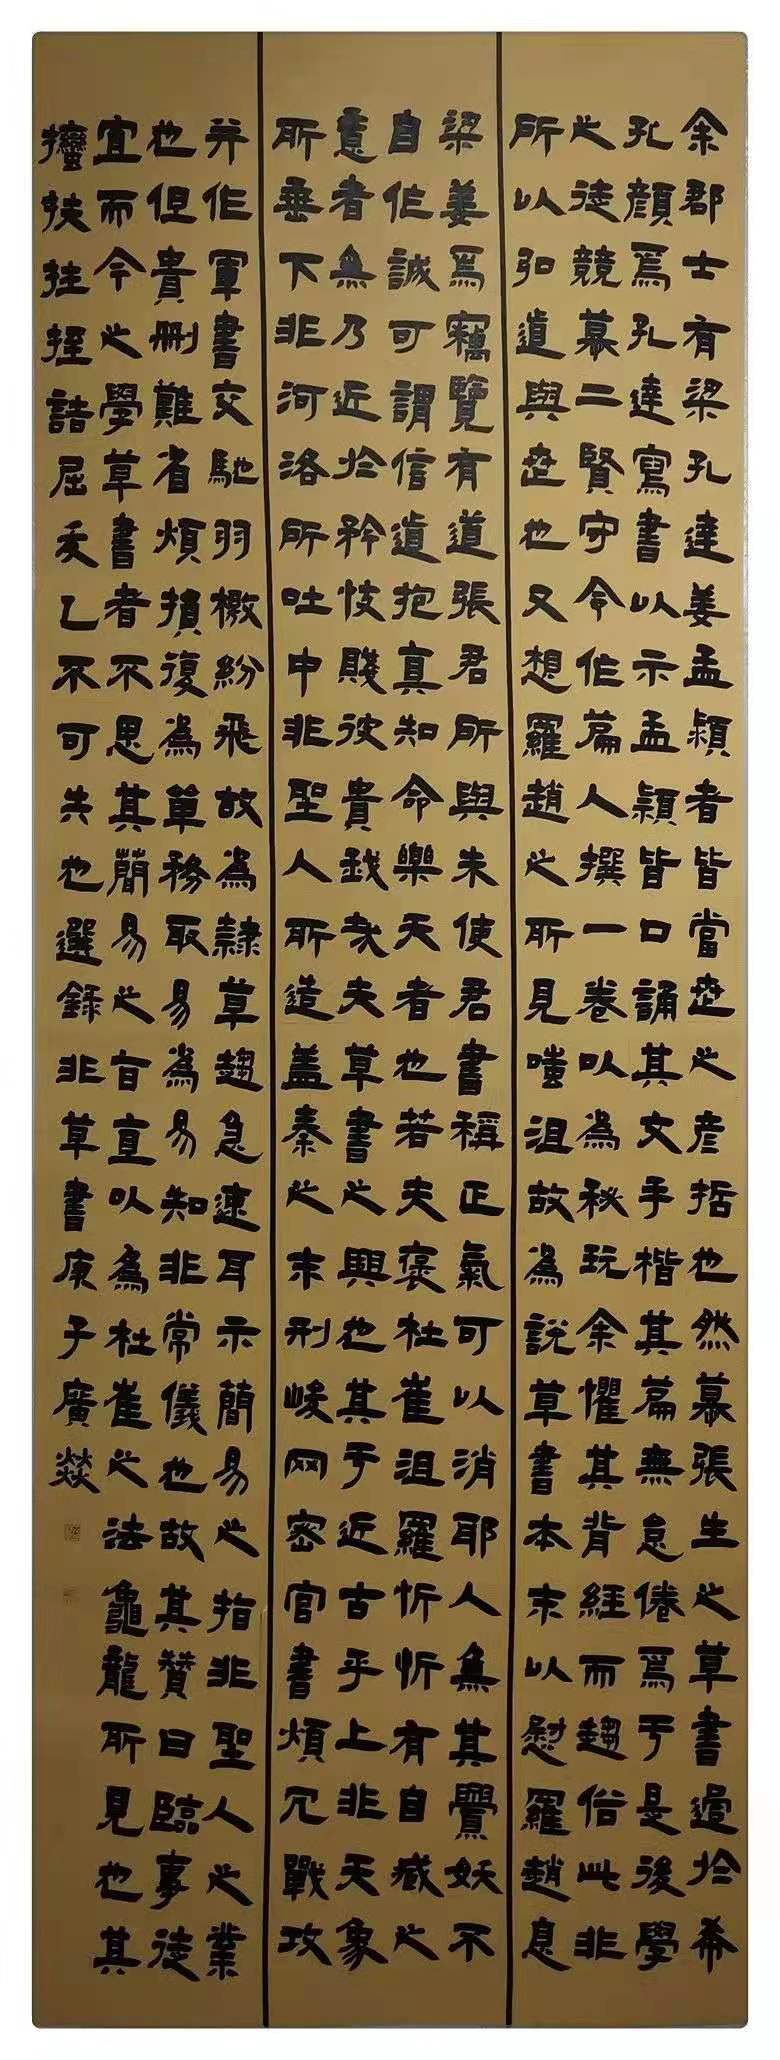 余郡士有梁孔達姜孟潁者皆當世之彥哲也然慕張生之草書過於希
孔顏焉孔達寫書以示孟潁皆口誦其文手楷其篇無怠倦焉于是後學
之徒競慕二賢守令作篇人撰一卷以為秘玩余懼其背經而趨俗此非
所以弘道與世也又想羅趙之所見嗤沮故為說草書本末以慰羅趙息
梁姜焉竊覽有道張君所與朱使君書稱正氣可以消耶人無其釁妖不
自作誠可謂信道抱真知命樂天者也若夫褒杜崔沮羅忻忻有自臧之
意者無乃近於矜忮賤彼貴我哉夫草書之興也其于近古乎上非天象
所垂下非河洛所吐中非聖人所造蓋秦之末刑峻网密官書煩冗戰攻
并作軍書交馳羽檄紛飛故為隸草趨急速耳示簡易之指非聖人之業
也但貴刪難省煩損復為單務取易為易知非常儀也故其贊曰臨事徒
宜而今之學草書者不思其簡易之旨直以為杜崔之法龜龍所見也其
㩽扶拄挃詰屈犮乙不可失也選錄非草書庚子廣燚